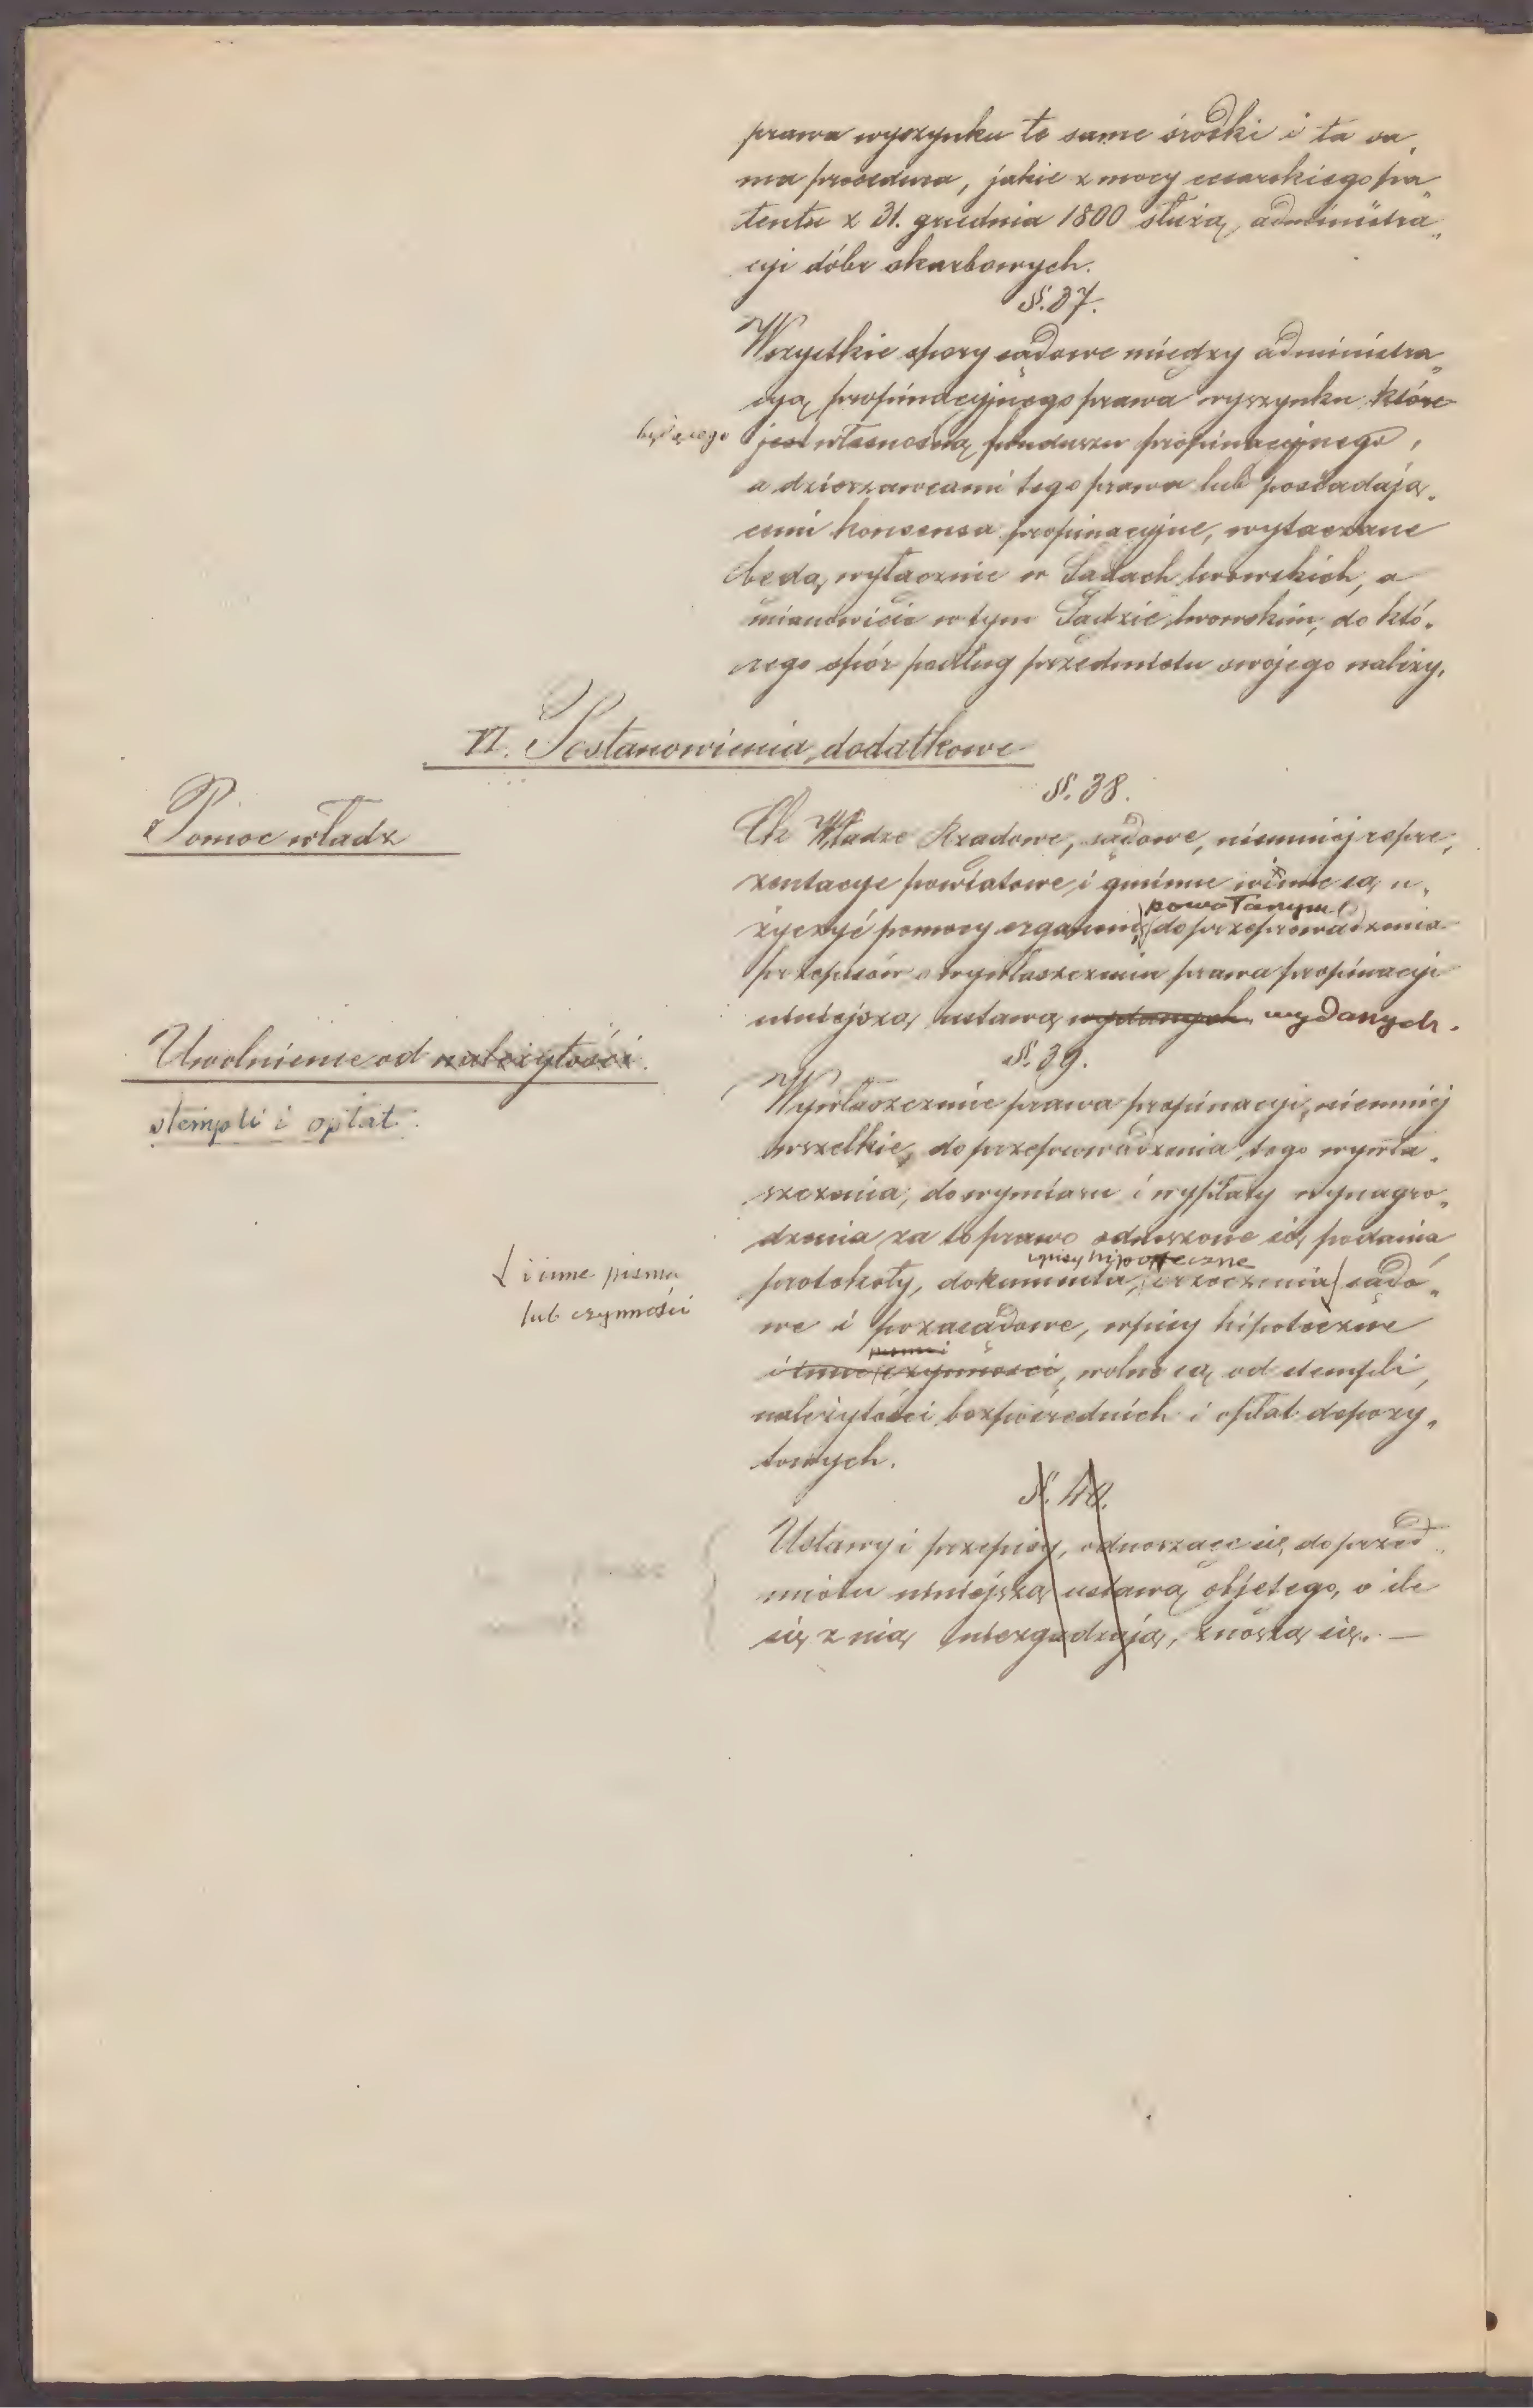 prawa wyszynku te same środki i ta sa„
ma procedura, jakie z mocy cesarskiego pa„
tentu z 31. grudnia 1800 służą administra„
cyi dóbr skarbowych.
§. 37.
Wszystkie spory sądowe między administra„
cyą propinacyjnego prawa wyszynku które
będącego
jest własnością funduszu propinacyjnego,
a dzierzawcami tego prawa lub posiadają„
cemi konsensa propinacyjne, wytaczane
będą wyłącznie w Sądach lwowskich, a
mianowicie w tym Sądzie lwowskim, do któ„
rego spór podług przedmiotu swojego należy.
VI. Postanowienia dodatkowe
§. 38.
Pomoc władz
Władze Rządowe, sądowe, niemniej repre„
zentacye powiatowe i gminne winne są u„
powołanym
życzyć pomocy organom do przeprowadzenia
przepisów o wywłaszczeniu prawa propinacyi
niniejszą ustawą wydanych wydanych.
§. 39.
Uwolnienie od należytości.
stempli i opłat.
Wywłaszczenie prawa propinacyi, niemniej
wszelkie, do przeprowadzenia tego wywła„
szczenia, do wymiaru i wypłaty wynagro„
dzenia za to prawo odnoszone się podania
wpisy hipoteczne
protokoły, dokumenta, orzeczenia sądo„
i inne pisma
lub czynności
we i pozasądowe, wpisy hipoteczne
pisma i
i inne czynności, wolne są od stempli,
należytości bezpośrednich i opłat depozy„
towych.
§. 40.
Ustawy i przepisy, odnoszące się do przed„
miotu niniejszą ustawą objętego, o ile
się z nią niezgadzają, znoszą się. —